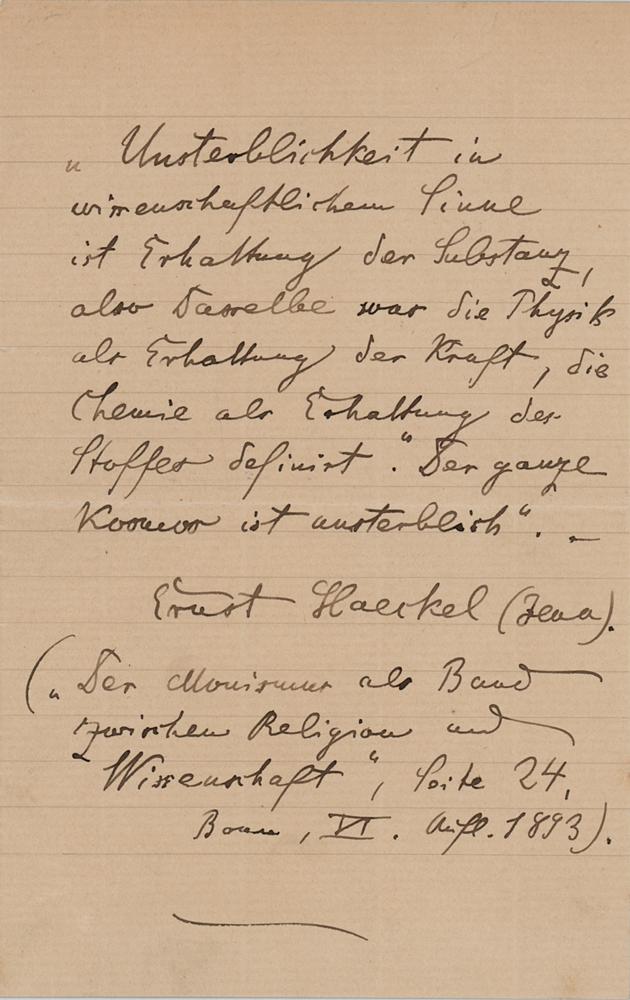 „ Unsterblichkeit in
wissenschaftlichem Sinne
ist Erhaltung der Substanz,
also Dasselbe was die Physik
als Erhaltung der Kraft, die
Chemie als Erhaltung des
Stoffes definirt." Der ganze
Kosmos ist unsterblich". –
Ernst Haeckel (Jena).
(„Der Monismus als Band
zwischen Religion und
Wissenschaft", Seite 24,
Bonn, VI. Aufl. 1893).